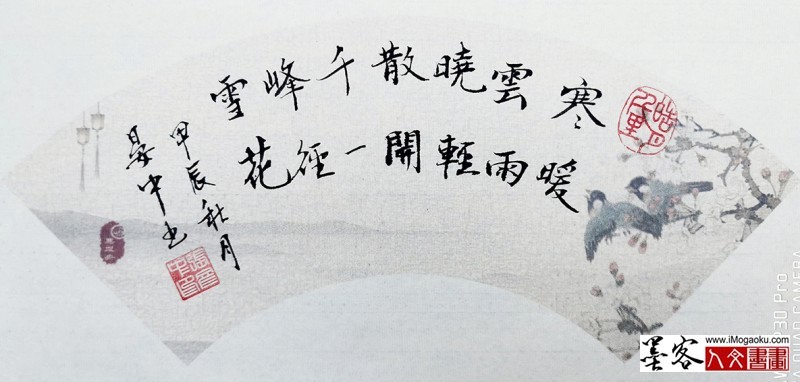 寒雲曉散千峰雪
暖雨輕開一徑花
甲辰秋月
中书
www.iMogaoku.com
墨客 人文書畫
P30 Pro
CAMERA